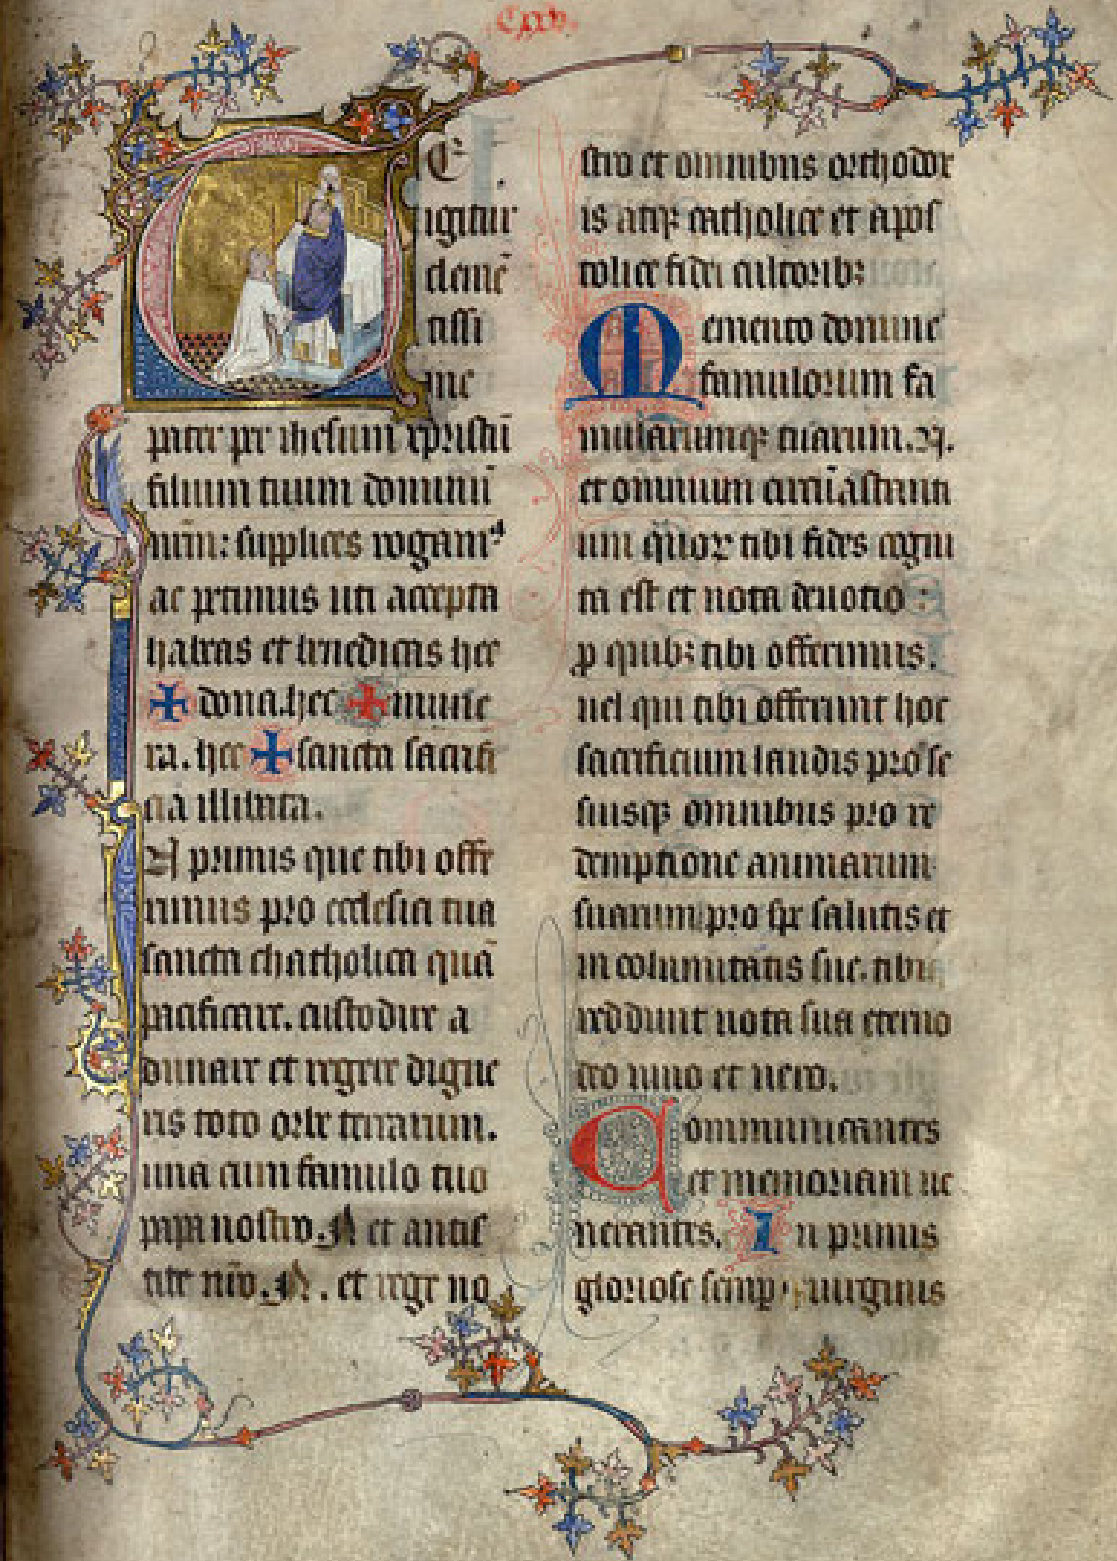 Cxxv.
TE
igitur
clemē
tissi
me
pater per ihesum xpristū
filium tuum dominū
nrm̄: supplices rogam⁹
ac petimus uti accepta
habeas et benedicas hec
✚ dona. hec ✚ mune
ra. hec ✚ sancta sacrifi
cia illibata.
In primis que tibi offe
rimus pro ecclesia tua
sancta chatholica quā
pacificare. custodire a
dunare et regere digne
ris toto orbe terrarum.
una cum famulo tuo
papa nostro. N et antis
tite nr̄o. N. et rege no
stro et omnibus orthodox
is atqꝫ catholice et apos
tolice fidei cultoribꝫ
Memento domine
famulorum fa
mularumqꝫ tuarum. N.
et omnium circūastanti
um quoꝝ tibi fides cogni
ta est et nota deuotio :
ꝓ quibꝫ tibi offerimus.
uel qui tibi offerunt hoc
sacrificium laudis pro se
suisqꝫ omnibus pro re
demptione animarum
suarum pro spe salutis et
in columitatis sue. tibi
reddunt uota sua eterno
deo uiuo et uero.
Communicantes
et memoriam ue
nerantes. In primis
gloriose semꝑ uirginis